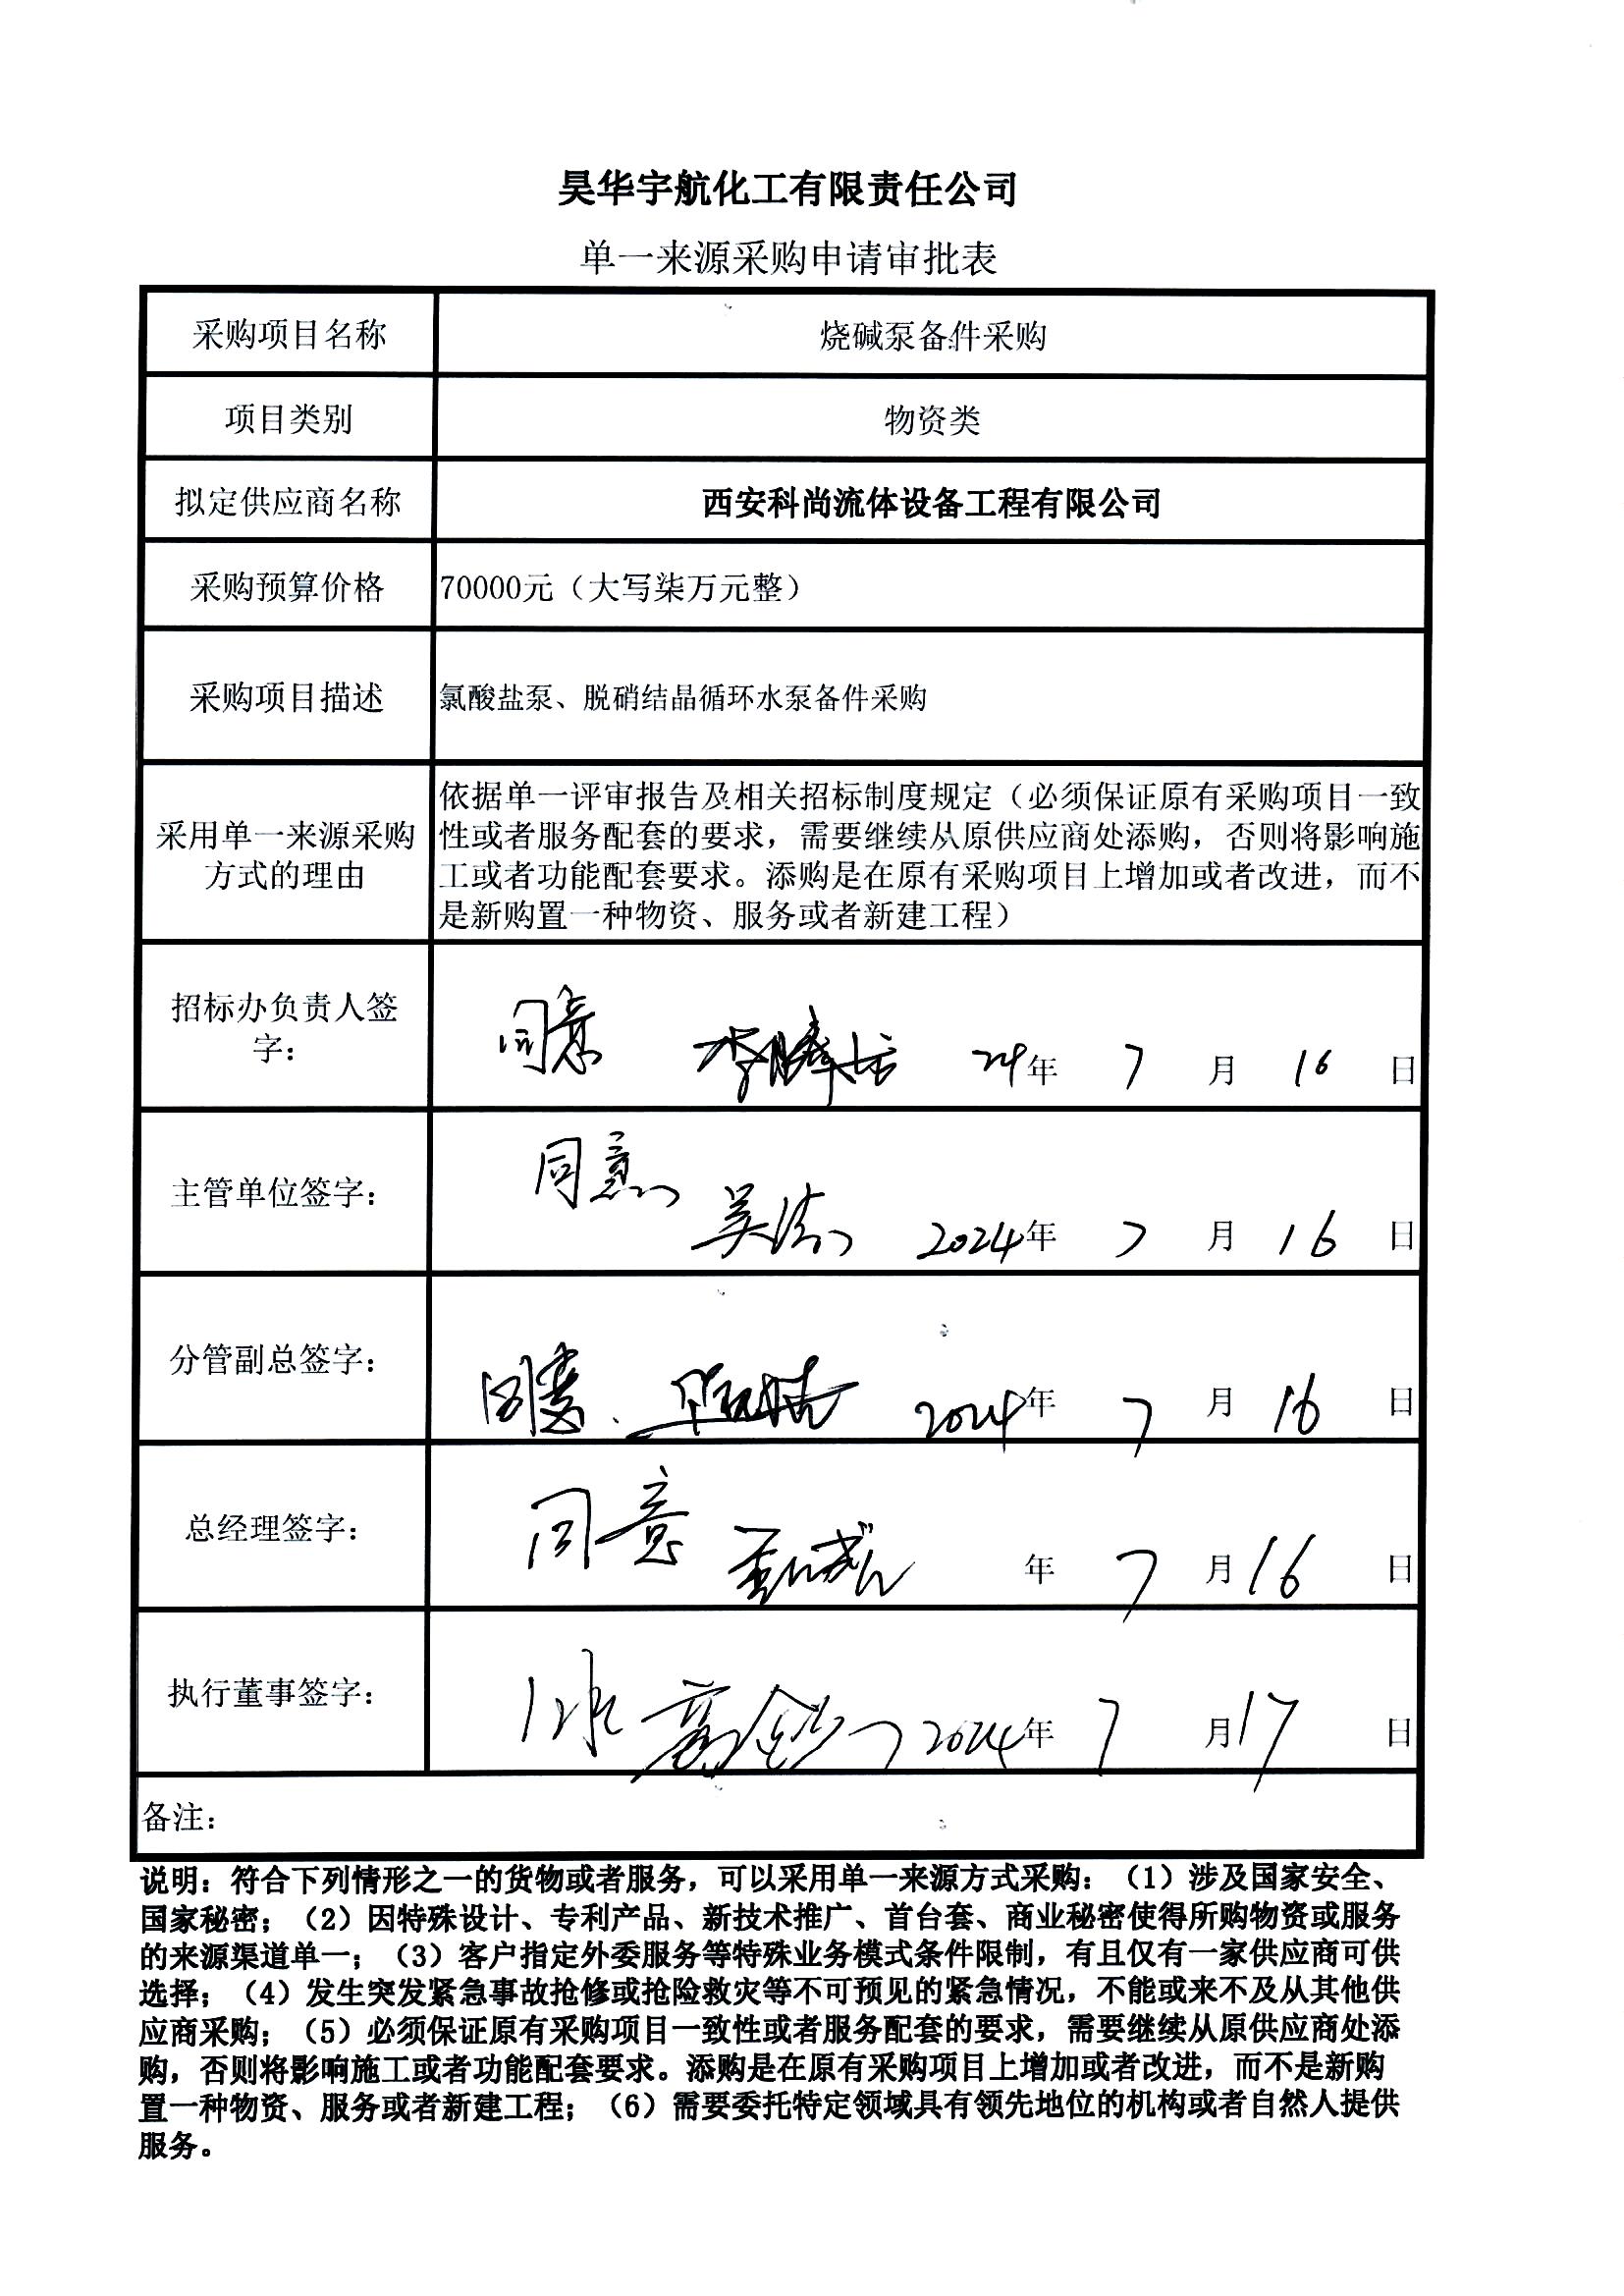 昊华宇航化工有限责任公司
单一来源采购申请审批表
采购项目名称
烧碱泵备件采购
项目类别
物资类
拟定供应商名称
西安科尚流体设备工程有限公司
采购预算价格
70000元（大写柒万元整）
采购项目描述
氯酸盐泵、脱硝结晶循环水泵备件采购
采用单一来源采购
方式的理由
依据单一评审报告及相关招标制度规定（必须保证原有采购项目一致
性或者服务配套的要求，需要继续从原供应商处添购，否则将影响施
工或者功能配套要求。添购是在原有采购项目上增加或者改进，而不
是新购置一种物资、服务或者新建工程）
招标办负责人签
字：
同意 24年 7 月 16 日
主管单位签字：
同意
吴 2024年 7 月 16 日
分管副总签字：
同意 2024年 7 月 16 日
总经理签字：
同意 年 7 月 16 日
执行董事签字：
2024年 7 月 17 日
备注：
说明：符合下列情形之一的货物或者服务，可以采用单一来源方式采购：（1）涉及国家安全、
国家秘密；（2）因特殊设计、专利产品、新技术推广、首台套、商业秘密使得所购物资或服务
的来源渠道单一；（3）客户指定外委服务等特殊业务模式条件限制，有且仅有一家供应商可供
选择；（4）发生突发紧急事故抢修或抢险救灾等不可预见的紧急情况，不能或来不及从其他供
应商采购；（5）必须保证原有采购项目一致性或者服务配套的要求，需要继续从原供应商处添
购，否则将影响施工或者功能配套要求。添购是在原有采购项目上增加或者改进，而不是新购
置一种物资、服务或者新建工程；（6）需要委托特定领域具有领先地位的机构或者自然人提供
服务。